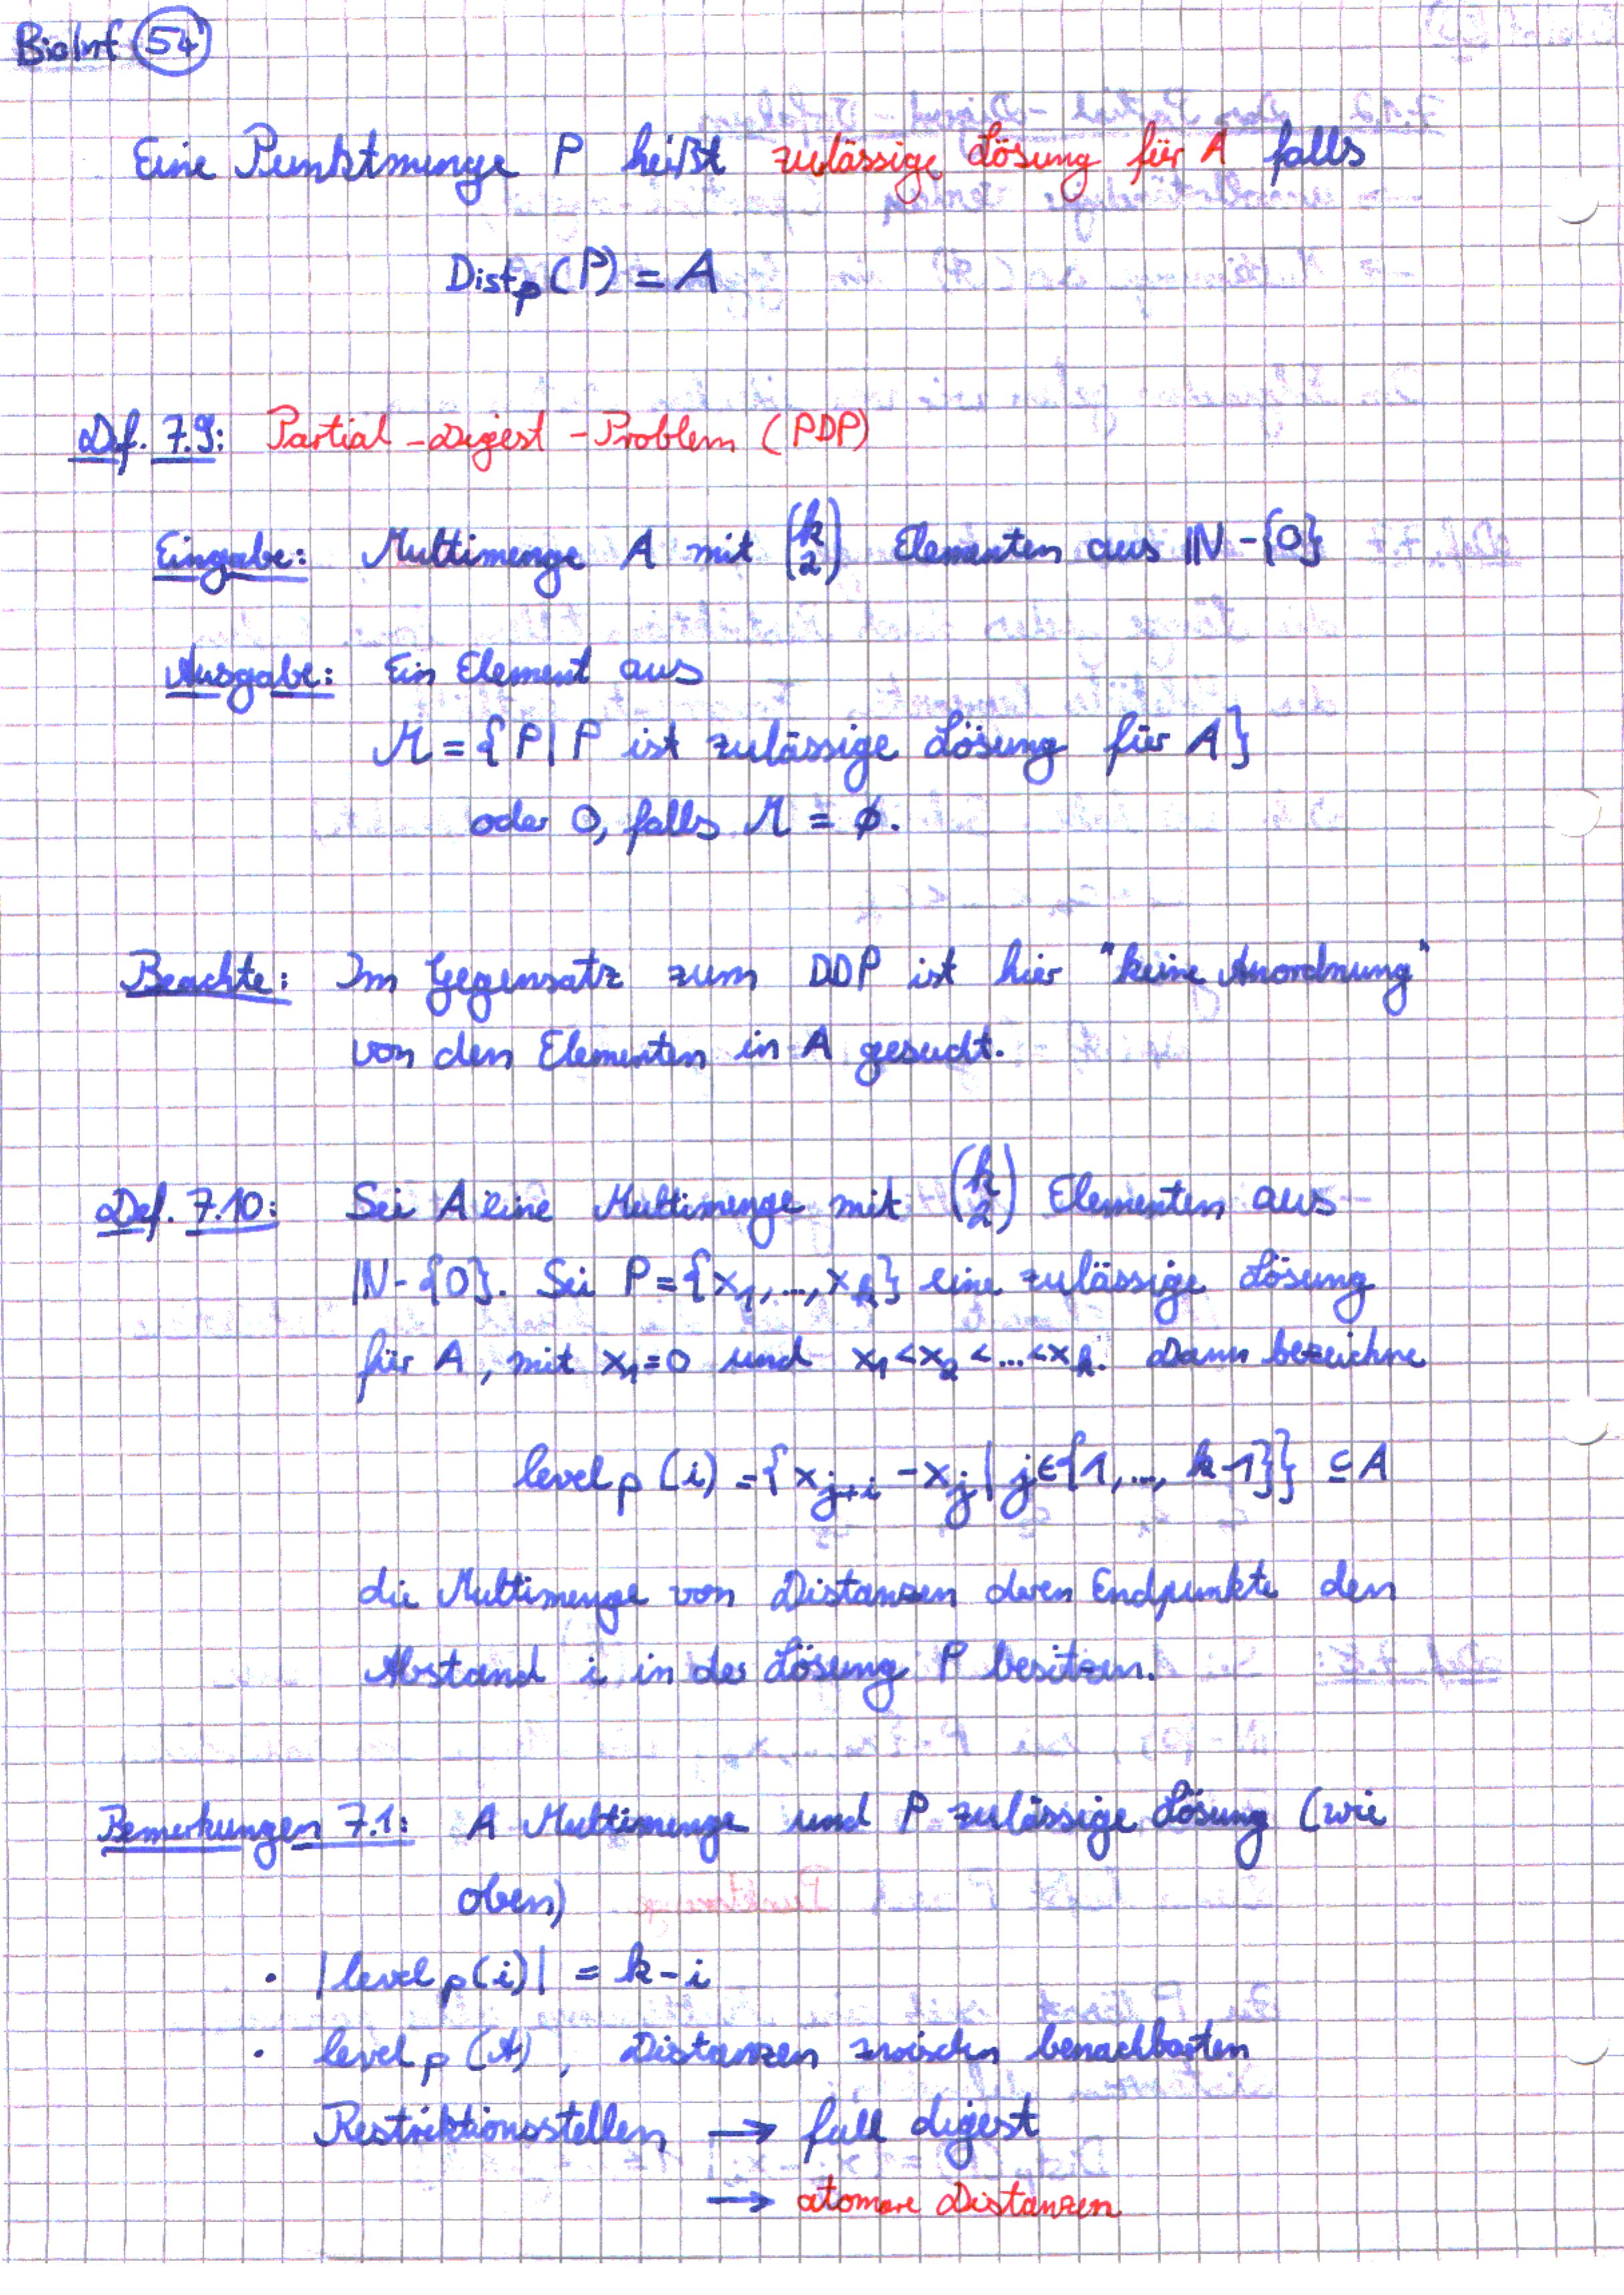 BioInf 54
Eine Punktmenge P heißt zulässige Lösung für A falls
Dist_p(P) = A
Def. 7.9: Partial-Digest-Problem (PDP)
Eingabe: Multimenge A mit (k 2) Elementen aus ℕ-{0}
Ausgabe: Ein Element aus
M = {P | P ist zulässige Lösung für A}
oder 0, falls M = ∅.
Beachte: Im Gegensatz zum DDP ist hier "keine Anordnung"
von den Elementen in A gesucht.
Def. 7.10: Sei A eine Multimenge mit (k 2) Elementen aus
ℕ-{0}. Sei P={x_1,...,x_k} eine zulässige Lösung
für A, mit x_1=0 und x_1<x_2<...<x_k. Dann bezeichne
level_p(i) = {x_{j+i} - x_j | j∈{1,..., k-1}} ⊆ A
die Multimenge von Distanzen deren Endpunkte den
Abstand i in der Lösung P besitzen.
Bemerkungen 7.1: A Multimenge und P zulässige Lösung (wie
oben)
· |level_p(i)| = k-i
· level_p(1), Distanzen zwischen benachbarten
Restriktionsstellen → full digest
→ atomare Distanzen